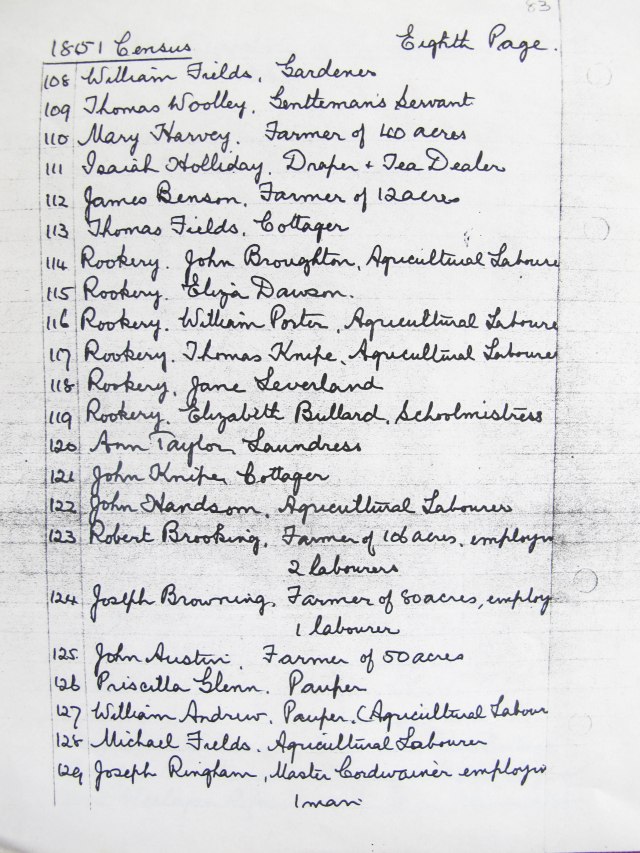 83
1851 Census Eighth Page.
108 William Fields, Gardener
109 Thomas Woolley, Gentleman's Servant
110 Mary Harvey. Farmer of 40 acres
111 Isaiah Holliday, Draper + Tea Dealer
112 James Benson, Farmer of 12 acres
113 Thomas Fields, Cottager
114 Rookery. John Broughton, Agricultural Laboure
115 Rookery. Eliza Dawson.
116 Rookery. William Porter, Agricultural Laboure
117 Rookery. Thomas Knipe, Agricultural Laboure
118 Rookery, Jane Leverland
119 Rookery. Elizabeth Bullard, Schoolmistress
120 Ann Taylor, Laundress
121 John Knipe, Cottager
122 John Handsom, Agricultural Labourer
123 Robert Brooking, Farmer of 106 acres, employin
2 labourers
124 Joseph Browning, Farmer of 80 acres, employ
1 labourer
125 John Austin, Farmer of 50 acres
126 Priscilla Glenn. Pauper
127 William Andrew. Pauper. (Agricultural Labour
128 Michael Fields. Agricultural Labourer
129 Joseph Ringham, Master Cordwainer employin
1 man